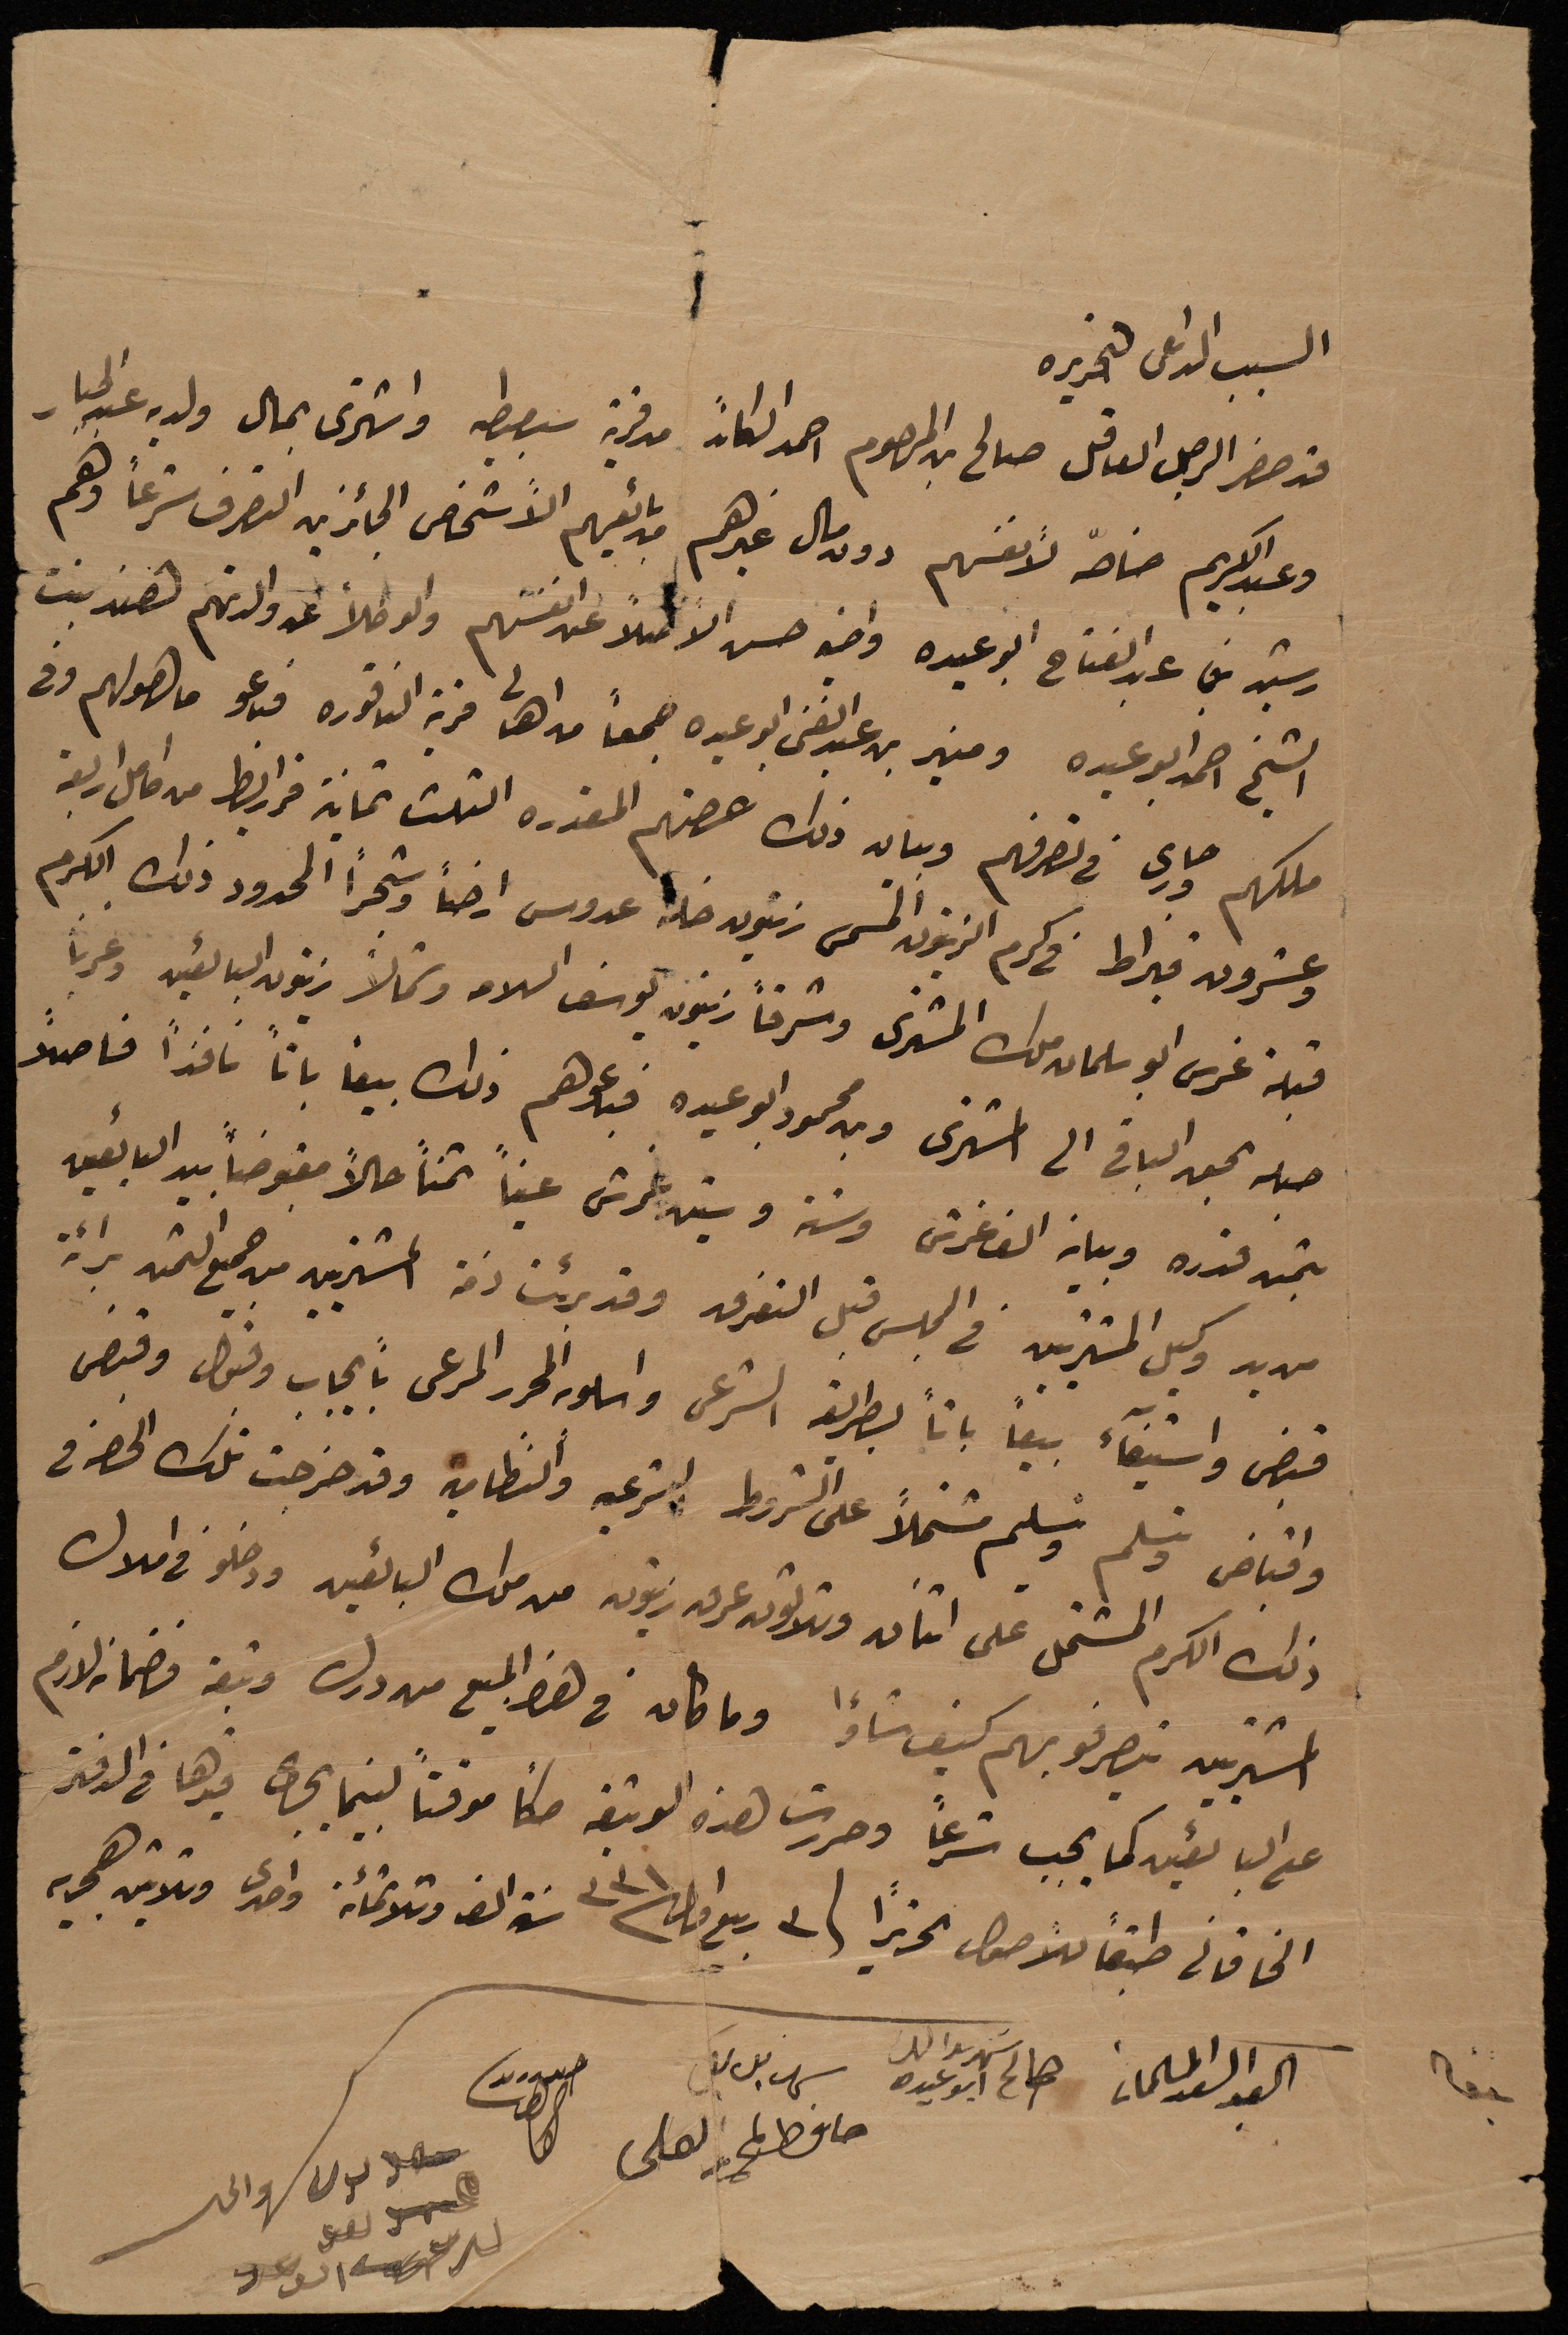 السبب الداعي لتحريره
قد حضر الرجل العاقل صالح بن المرحوم احمد الكايد من قرية سبسطيه واشترى بمال ولديه عبد الجبار
وعبد الكريم خاصة لأنفسهم دون مال غيرهم من بائعيهم الأشخاص الجائزين التصرف شرعاً وهم
رشيد بن عبد الفتاح ابو عبيده واخيه حسن الأصلاً عن انفسهم والوكلاً عن والدتهم بنت
الشيخ احمد ابو عبيده ومنير بن عبد الغني ابو عبيده جمعاً من اهالي قرية الناقوره فباعو ما هو لهم وفي
ملكهم وجاري في تصرفهم وبيان ذلك حصتهم المقدره الثلث ثمانية قراريط من اصل اربعة
وعشرون قيراط في كرم الزيتون المسمى زيتون خلة عدوس ارضاً وشجراً المحدود ذلك الكرم
قبلة غرس ابو سلمان ملك المشتري وشرقاً زيتون يوسف السلامه وشمالاً زيتون البائعين وغرباً
جبله بحق الباقي الى المشتري وبن محمود ابو عبيده فباعوهم ذلك بيعاً باتاً نافذاً فاصلاً
بثمن قدره وبيانه الف غرش وستة وستين غرش عيناً ثمناً حالاً مقبوضاً بيد البائعين
من يد وكيل المشتريين في المجلس قبل التفرق وقد برئت ذمة المشتريين من جميع الثمن برائة
قبض واستيفآء بيعاً باتاً بطريقه الشرعي واسلوبه المحرر المرعي بأيجاب وقبول وقبض
واقباض وتسلم وتسليم مشتملاً على الشروط الشرعيه والنظاميه وقد خرجت تلك الحصه في
ذلك الكرم المشتمل على اثنان وثلاثون عرق زيتون من ملك البائعين ودخلو في املاك
المشتريين يتصرفو بهم كيف شاؤا وما كان في هذا المبيع من درك وتبعه فضمانه لازم
على البائعين كما يجب شرعاً وحررت هذه الوثيقه صكاً موقتاً لبينما يجري قيدها في الدفتر
الخاقاني طبقاً للأصول تحريراً في ٣ ربيع اول سنة ٣٣١ سنة الف وثلاثمائة واحدى وثلاثين هجريه
صالح ابو عبيده
حافظ